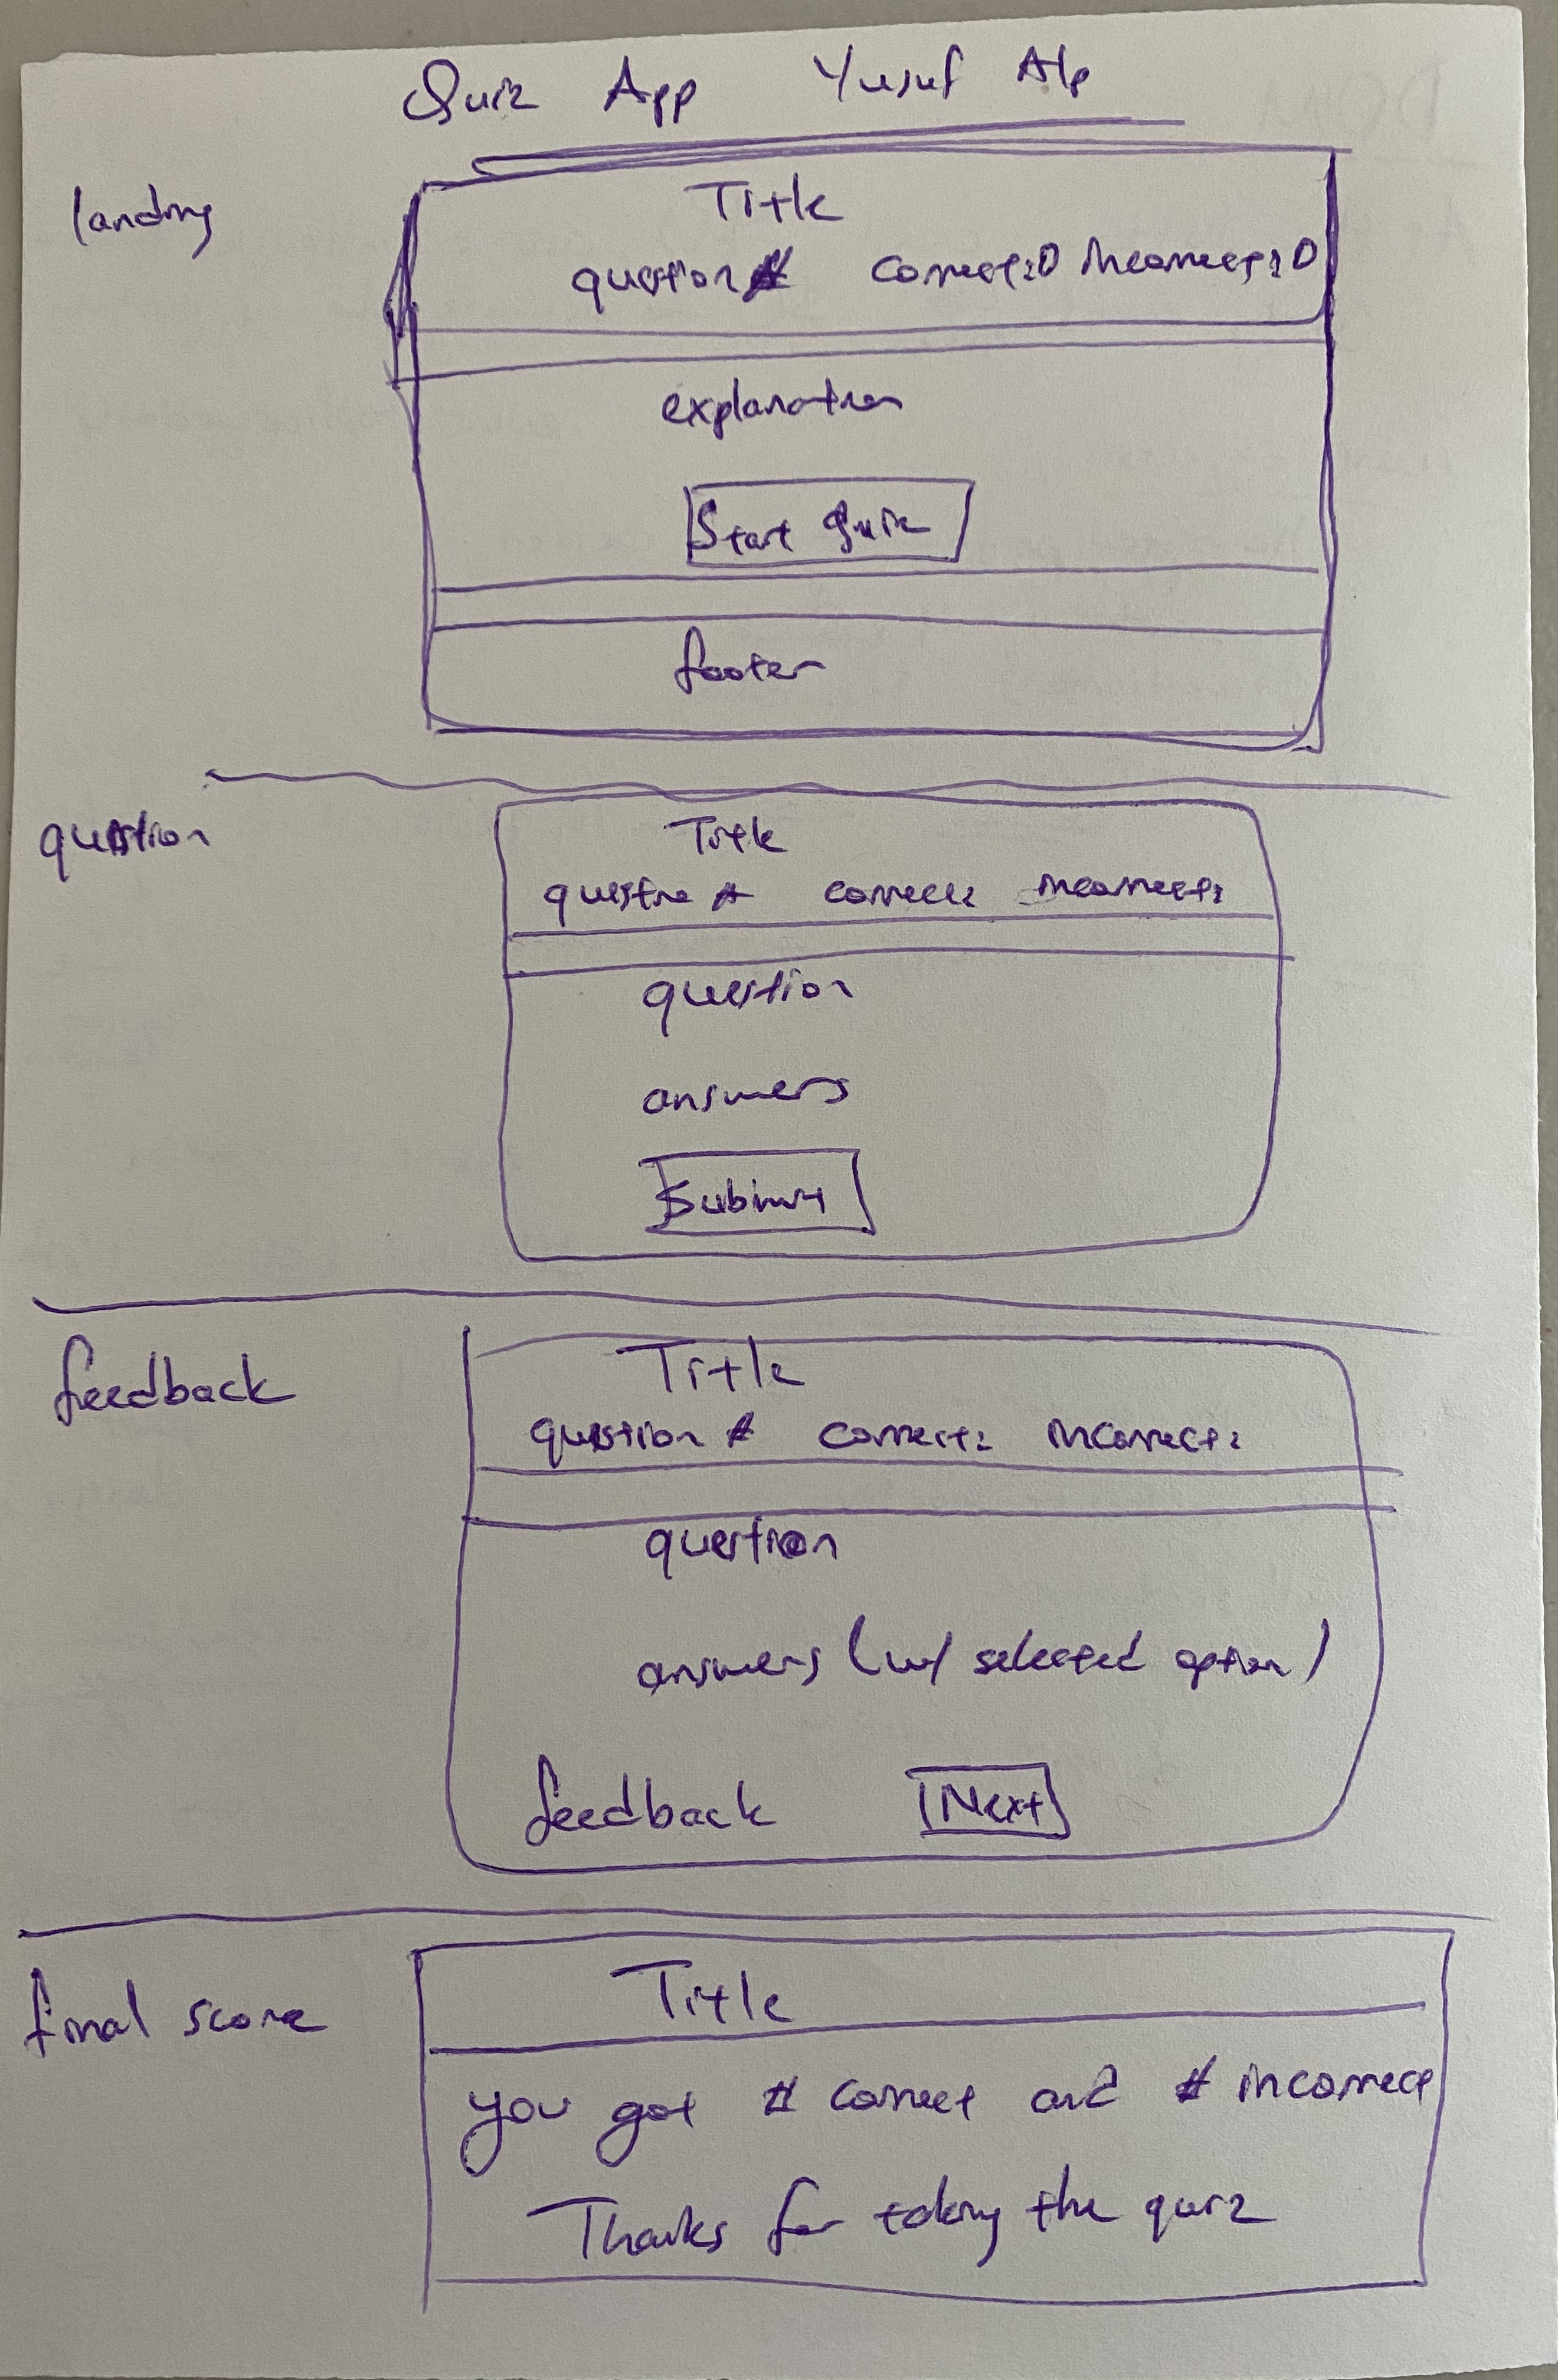 Quiz App Yusuf Alp
landing
Title
question # correct: 0 incorrect: 0
explanation
Start Quiz
footer
question
Title
question # correct: incorrect:
question
answers
Submit
feedback
Title
question # correct: incorrect:
question
answers (w/ selected option)
feedback Next
final score
Title
you got # correct and # incorrect
Thanks for taking the quiz